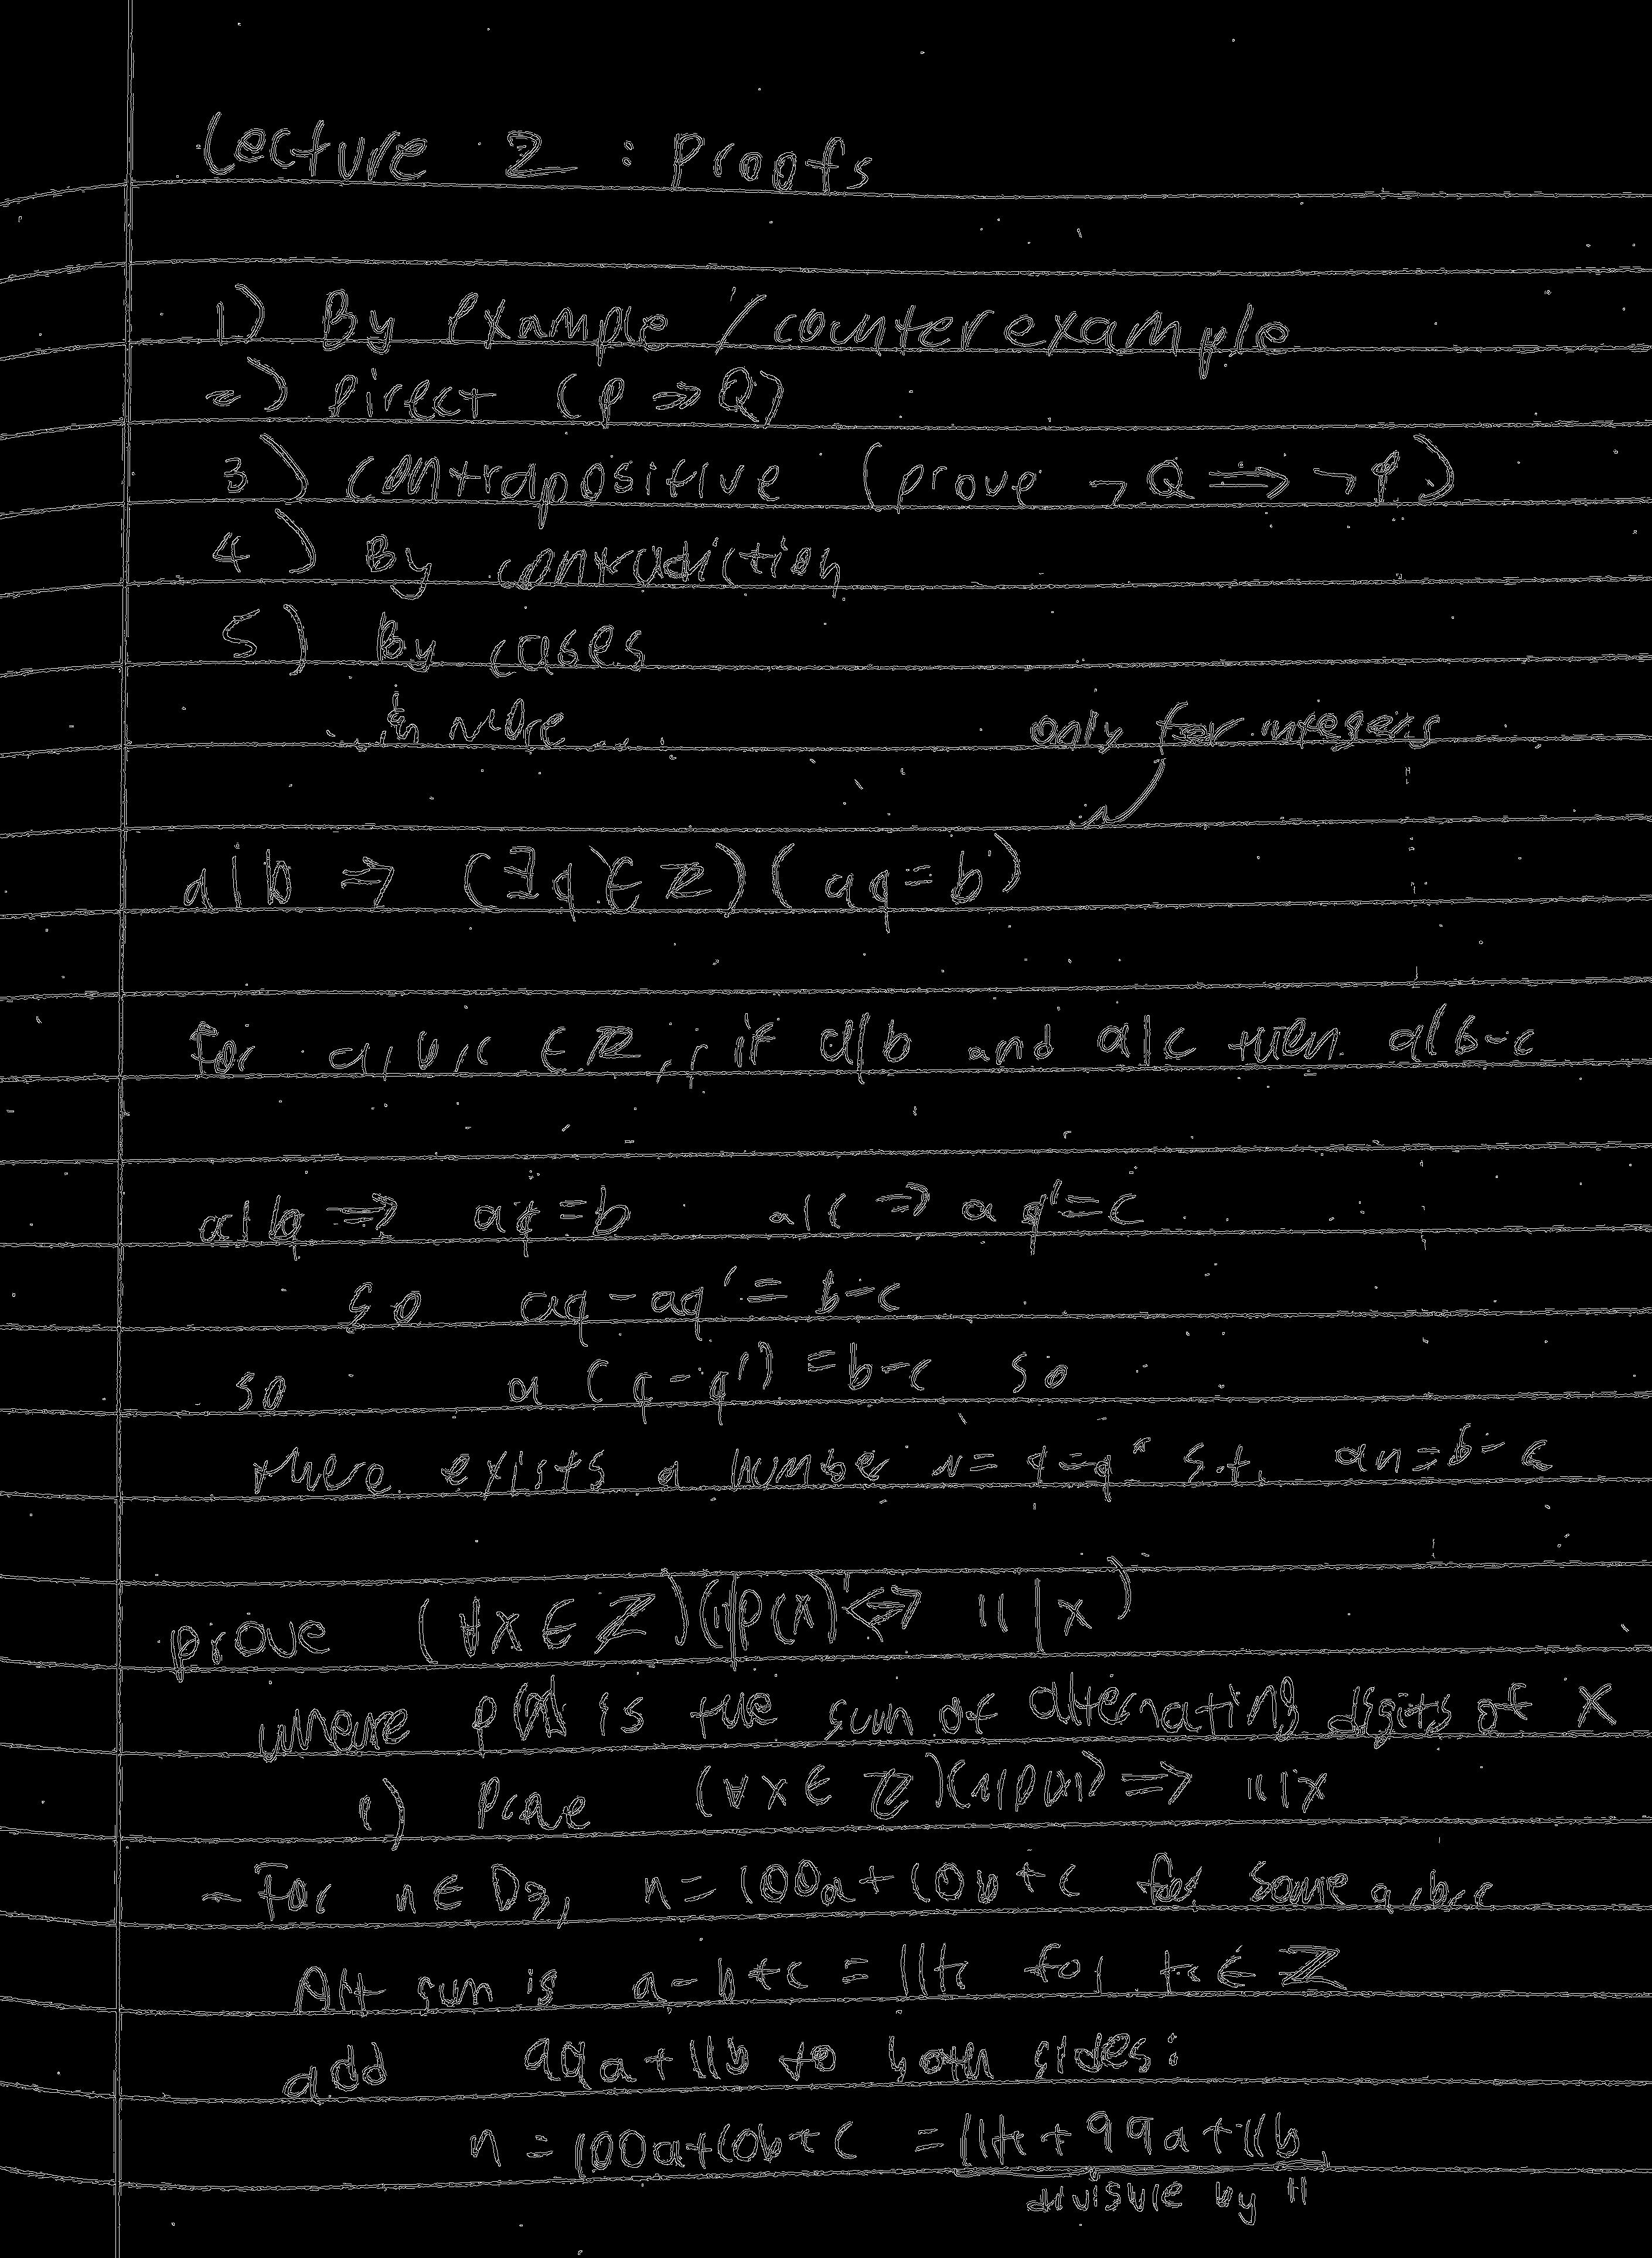 Lecture 2 : Proofs
1) By example / counterexample
2) Direct (P ⇒ Q)
3) Contrapositive (prove ¬Q ⇒ ¬P)
4) By contradiction
5) By cases
... & more ...
only for integers
a|b ⇒ (∃q ∈ ℤ)(aq=b)
For a,b,c ∈ ℤ, if a|b and a|c then a|b-c
a|b ⇒ aq=b a|c ⇒ aq'=c
so aq-aq'= b-c
so a(q-q')=b-c so
there exists a number n=q-q' s.t. an=b-c
prove (∀x ∈ ℤ)(11|p(x) ⇔ 11|x)
where p(x) is the sum of alternating digits of x
1) Prove (∀x ∈ ℤ)(11|p(x)) ⇒ 11|x
- For n ∈ D3, n = 100a+10b+c for some a,b,c
Alt sum is a-b+c = 11k for k ∈ ℤ
add 99a+11b to both sides:
n = 100a+10b+c = 11k+99a+11b
divisible by 11